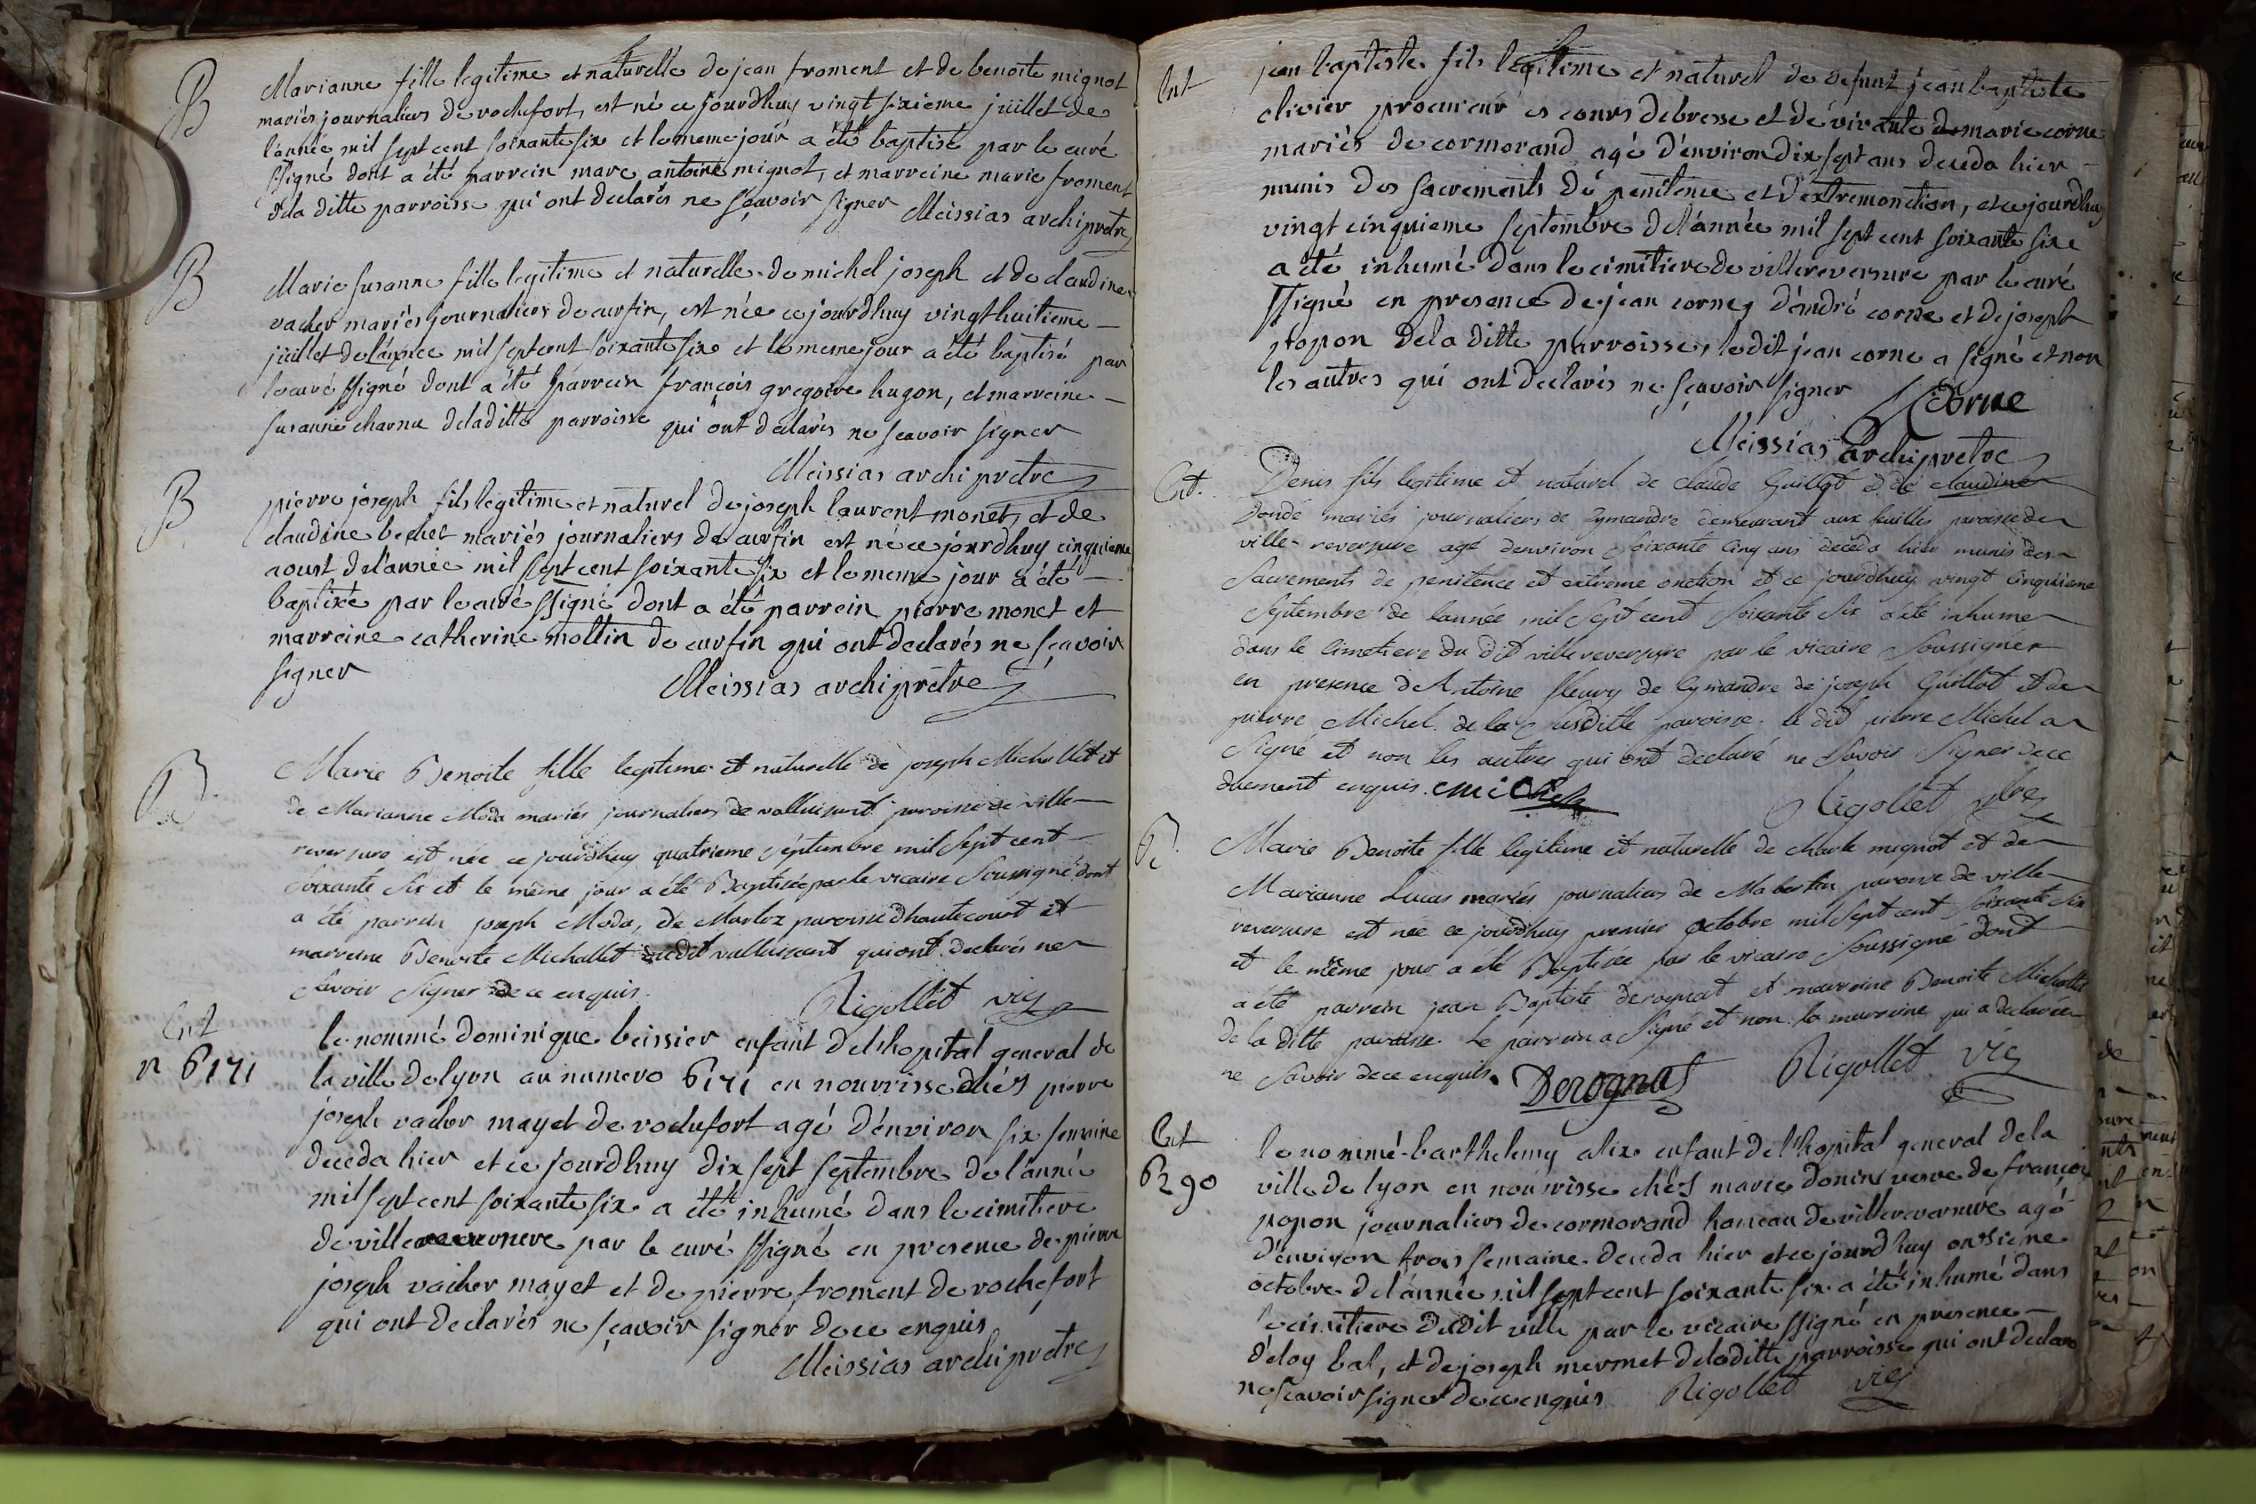 B
Marianne fille legitime et naturelle de jean froment et de benoite mignot
mariés journaliers de rochefort, est né ce jourdhuy vingt sixieme juillet de
l'année mil sept cent soixante six et le meme jour a été baptisé par le curé
ssigné dont a été parrein marc antoine mignot, et marreine marie froment
de la ditte parroisse qui ont declarés ne sçavoir signer Meissias archipretre
B
Marie susanne fille legitime et naturelle de michel joseph et de claudine
vacher mariés journaliers de curfin, est née ce jourdhuy vingt huitieme
juillet de l'année mil sept cent soixante six et le meme jour a été baptisé par
le curé ssigné dont a été parrein françois gregoire hugon, et marreine
susanne charnu de la ditte parroisse qui ont declarés ne sçavoir signer
Meissias archipretre
B
pierre joseph fils legitime et naturel de joseph laurent monet, et de
claudine bechet mariés journaliers de curfin est né ce jourdhuy cinquieme
aoust de l'année mil sept cent soixante six et le meme jour a été
baptisé par le curé ssigné dont a été parrein pierre monet et
marreine catherine mottin de curfin qui ont declarés ne sçavoir
signer
Meissias archiprêtre
B
Marie Benoite fille legitime et naturelle de joseph Michallet et
de Marianne Moda mariés journaliers de valluisant paroisse de ville
reversure est née ce jourdhuy quatrieme séptembre mil sept cent
soixante six et le même jour a été Baptisée par le vicaire soussigné dont
a été parrein joseph Moda, de Marloz paroisse dhautecourt et
marreine Benoite Michallet dudit valluisant qui ont declarés ne
savoir signer de ce enquis.
Rigollet vic
Ent
n 6171
le nommé dominique beissier enfant de l'hopital general de
la ville de lyon au numero 6171 en nourrisse chés pierre
joseph vacher mayet de rochefort agé d'environ six semaine
deceda hier et ce jourdhuy dix sept septembre de l'année
mil sept cent soixante six a été inhumé dans le cimitiere
de villereversure par le curé ssigné en presence de pierre
joseph vacher mayet et de pierre froment de rochefort
qui ont declarés ne sçavoir signer de ce enquis
Meissias archipretre
Ent
jean baptiste fils legitime et naturel de defunt jean baptiste
olivier procureur es cours de bresse et de vivante de marie corne
mariés de cormorand agé d'environ dix sept ans deceda hier
munis des sacrements de penitence et d'extremonction, et ce jourdhuy
vingt cinquieme septembre de l'année mil sept cent soixante six
a été inhumé dans le cimitiere de villereversure par le curé
ssigné en presence de jean corne, d'andré corne et de joseph
popon de la ditte parroisse, le dit jean corne a signé et non
les autres qui ont declarés ne sçavoir signer
Corne
Meissias archiprêtre
Ent.
Denis fils legitime et naturel de claude Guillot et de claudine
Dondé mariés journaliers de Symandre demeurant aux feuilles paroisse de
ville-reversure agé denviron soixante cinq ans deceda hier munis des
sacrements de penitence et extreme onction et ce jourdhuy vingt cinquieme
septembre de lannée mil sept cent soixante six a été inhumé
dans le cimetiere du dit villereversure par le vicaire soussigné
en presence de Antoine fleury de Symandre de joseph Guillot et de
pierre Michel de la susditte paroisse. le dit pierre Michel a
signé et non les autres qui ont declaré ne savoir signer de ce
duement enquis. Michel
Rigollet vic
B
Marie Benoite fille legitime et naturelle de charle mignot et de
Marianne Lucas mariés journaliers de Mabertin paroisse de ville
reversure est née ce jourdhuy premier octobre mil sept cent soixante six
et le même jour a été Baptisée par le vicaire soussigné dont
a été parrein jean Baptiste Derognat et marreine Benoite Michallet
de la ditte paroisse. Le parrein a signé et non la marreine qui a declarée
ne savoir de ce enquis. Derognat Rigollet vic
Ent
6290
le nommé barthelemy alix enfant de l'hopital general de la
ville de lyon en nourrisse chés marie donin veuve de françois
popon journaliers de cormorand hameau de villereversure agé
d'environ trois semaine deceda hier et ce jourdhuy onzsieme
octobre de l'année mil sept cent soixante six a été inhumé dans
le cimitiere dudit ville par le vicaire ssigné en presence
d'eloy bal, et de joseph mermet de la ditte parroisse qui ont declaré
ne sçavoir signer de ce enquis Rigollet vic